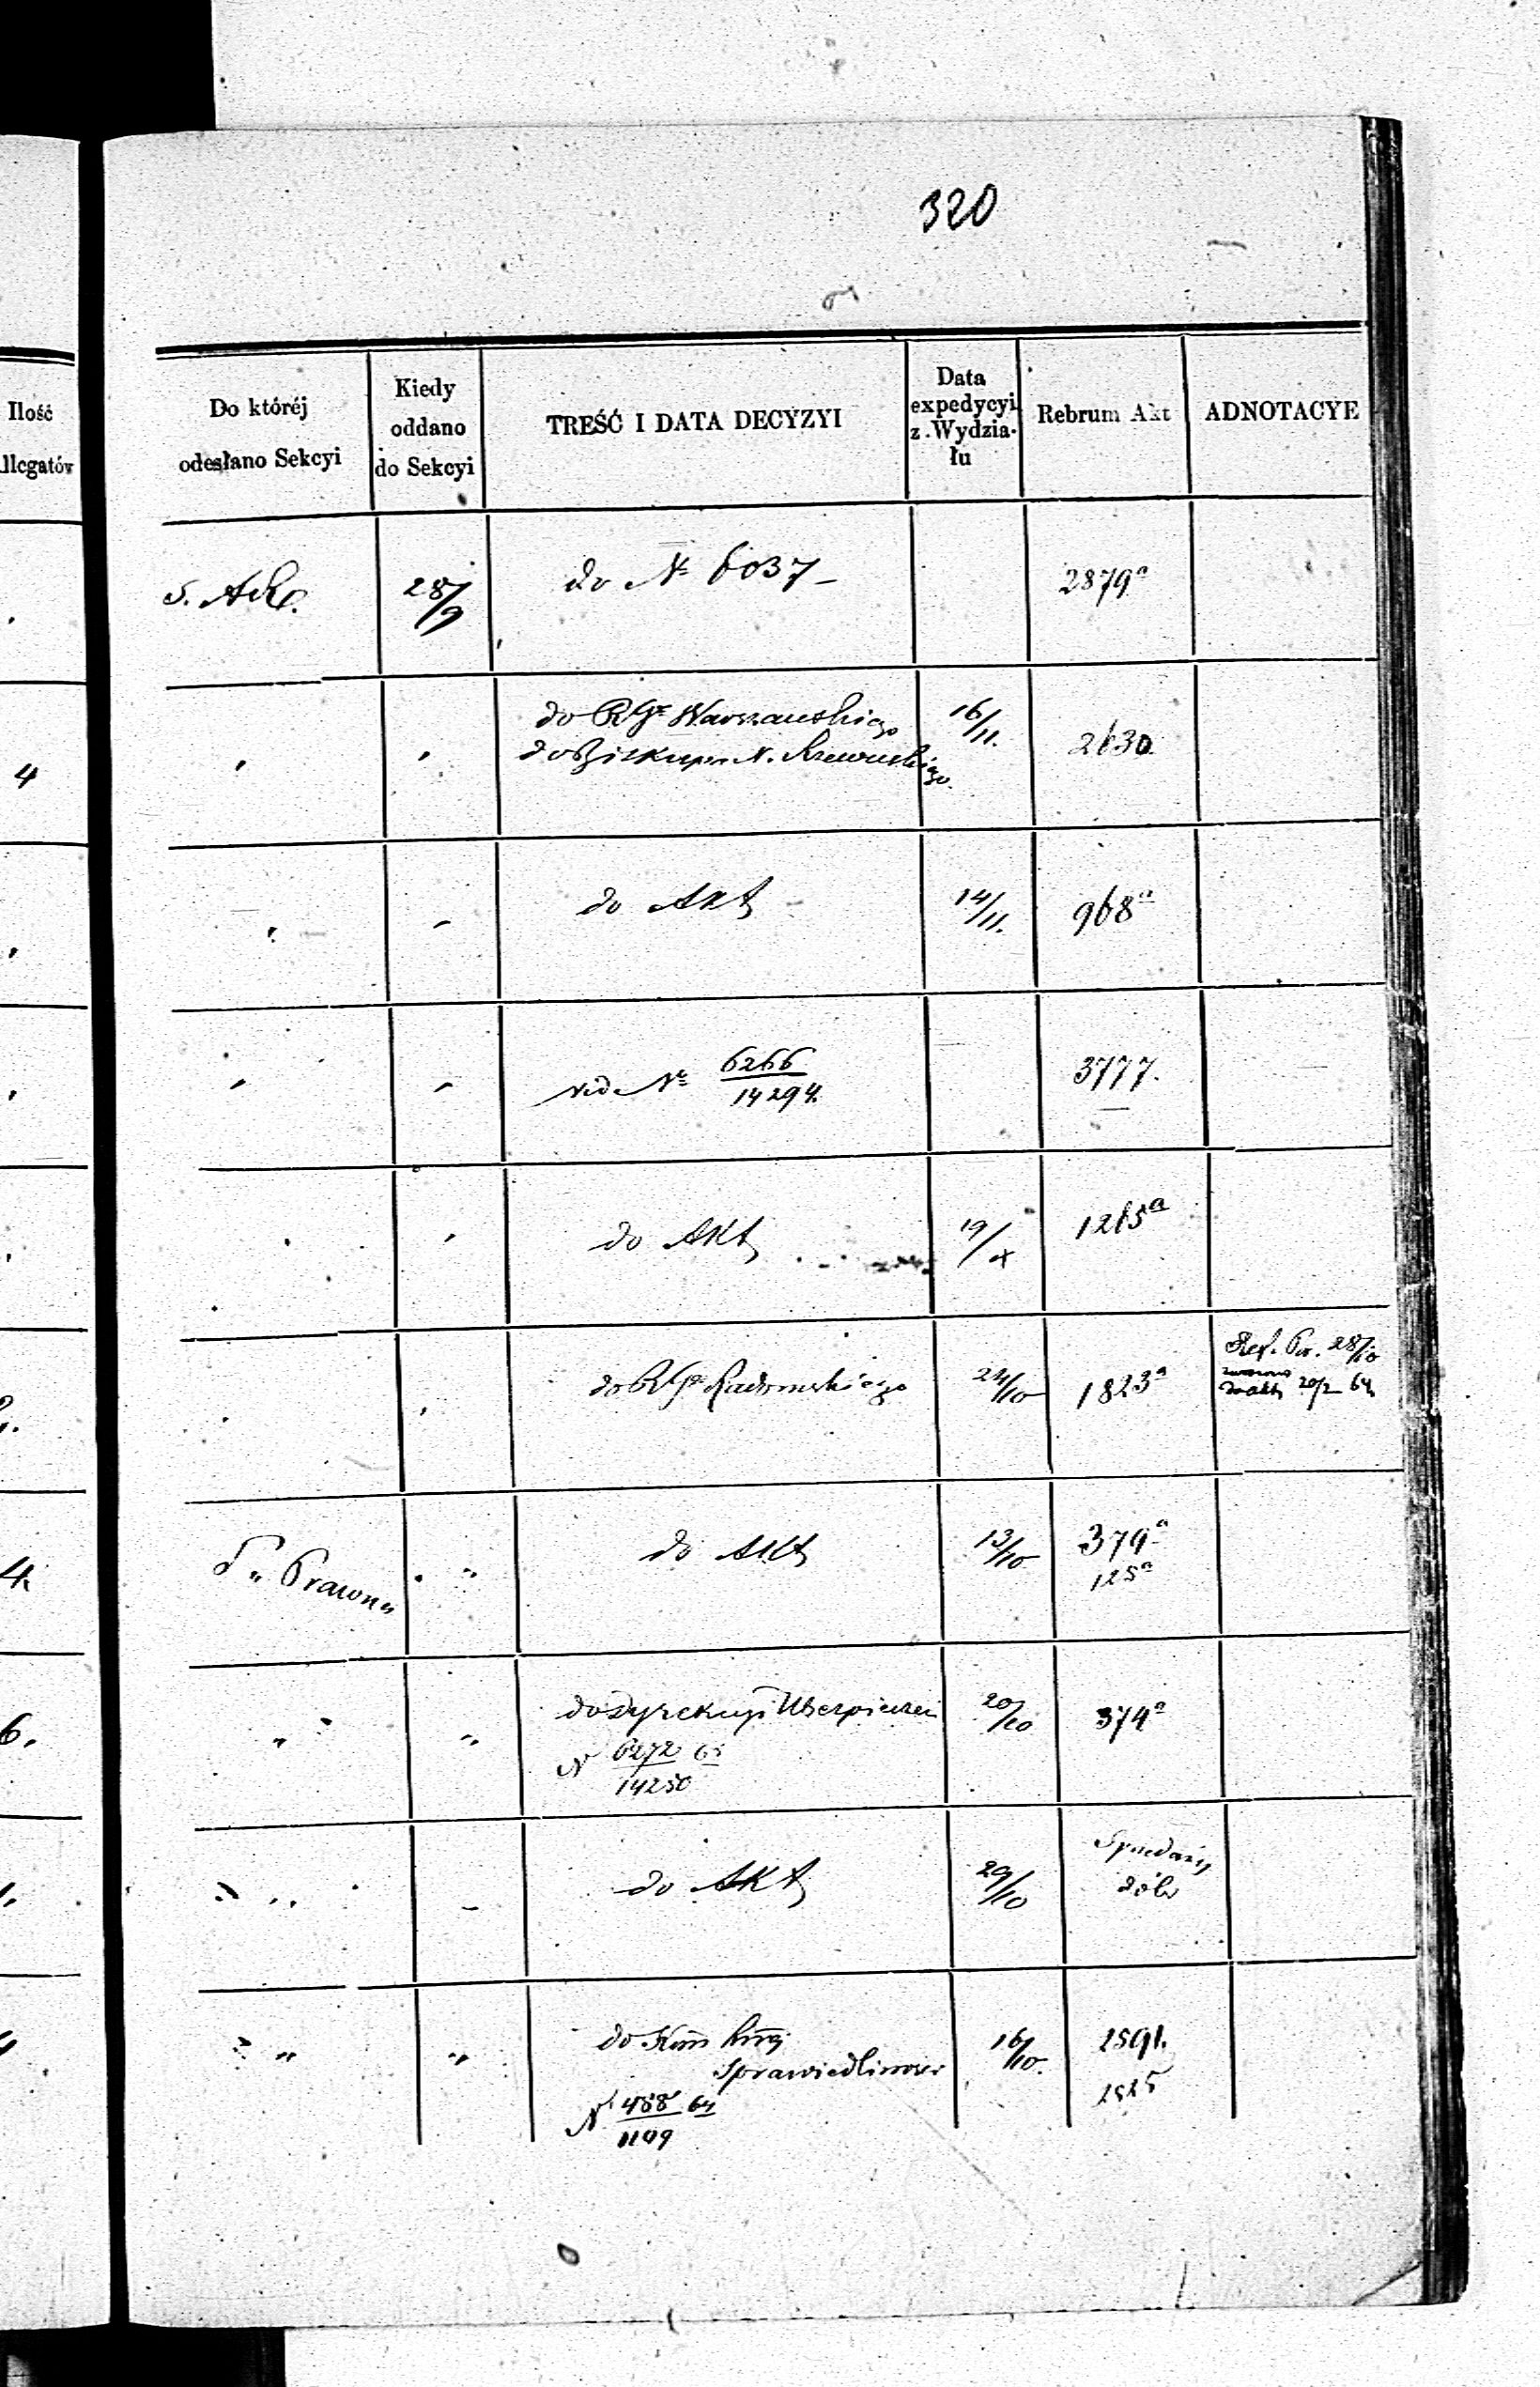 320
Ilość
llegatów
Do któréj
odesłano Sekcyi
Kiedy
oddano
do Sekcyi
TREŚĆ I DATA DECYZYI
Data
expedycyi
z Wydzia-
łu
Rebrum Akt
ADNOTACYE
28/9
do № 6037
2879a
4
do Warszawskiego
do Biskupa
16/11.
2630
do Akt
14/11.
968a
vid № 6266/14294.
3777.
do Akt
19/X
1265a
do Radomskiego
24/10
1823a
28/10
do akt 20/2 64
4.
S. Prawna
do Akt
13/10
379a
125a
6.
do Dyrekcyi Ubezpieczeń
N 6272/14250
20/10
374a
" "
do Akt
29/10
Sprzedaży
dóbr
" "
"
do Kom
Sprawiedliwości
N 488/1109 64
16/10.
2591.
2525